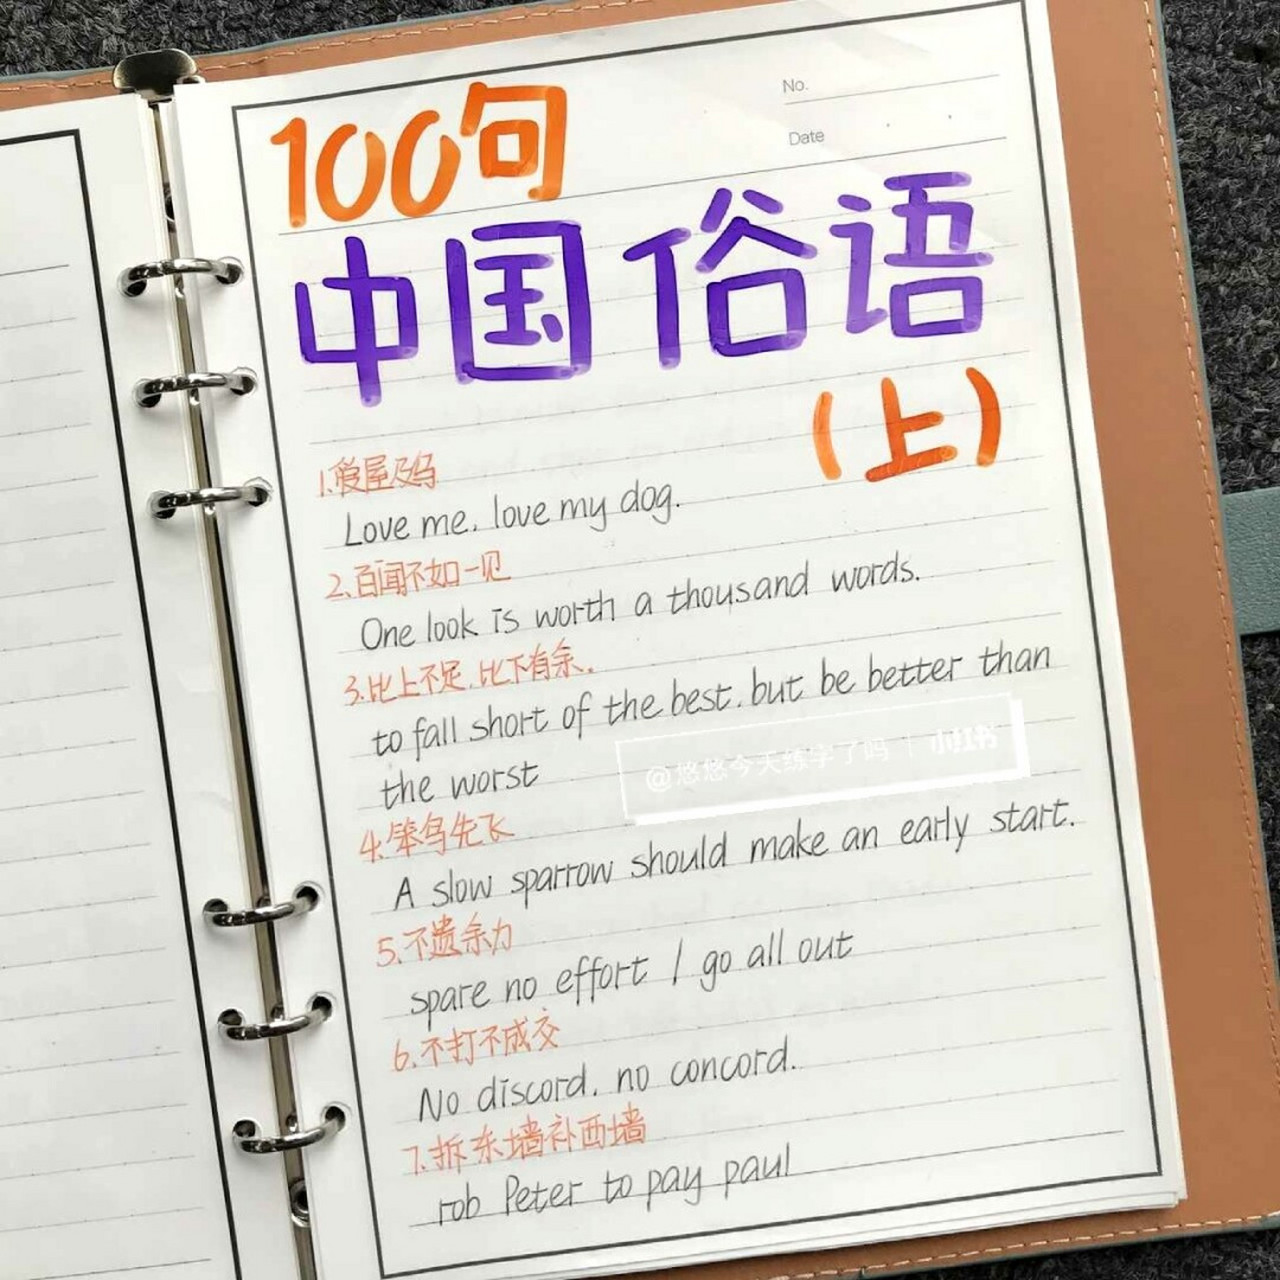 No.
Date
100句
中国俗语
(上)
1.爱屋及乌
Love me, love my dog.
2.百闻不如一见
One look is worth a thousand words.
3.比上不足,比下有余.
to fall short of the best, but be better than
the worst
@悠悠今天练字了吗 | 小红书
4.笨鸟先飞
A slow sparrow should make an early start.
5.不遗余力
spare no effort / go all out
6.不打不成交
No discord, no concord.
7.拆东墙补西墙
rob Peter to pay paul